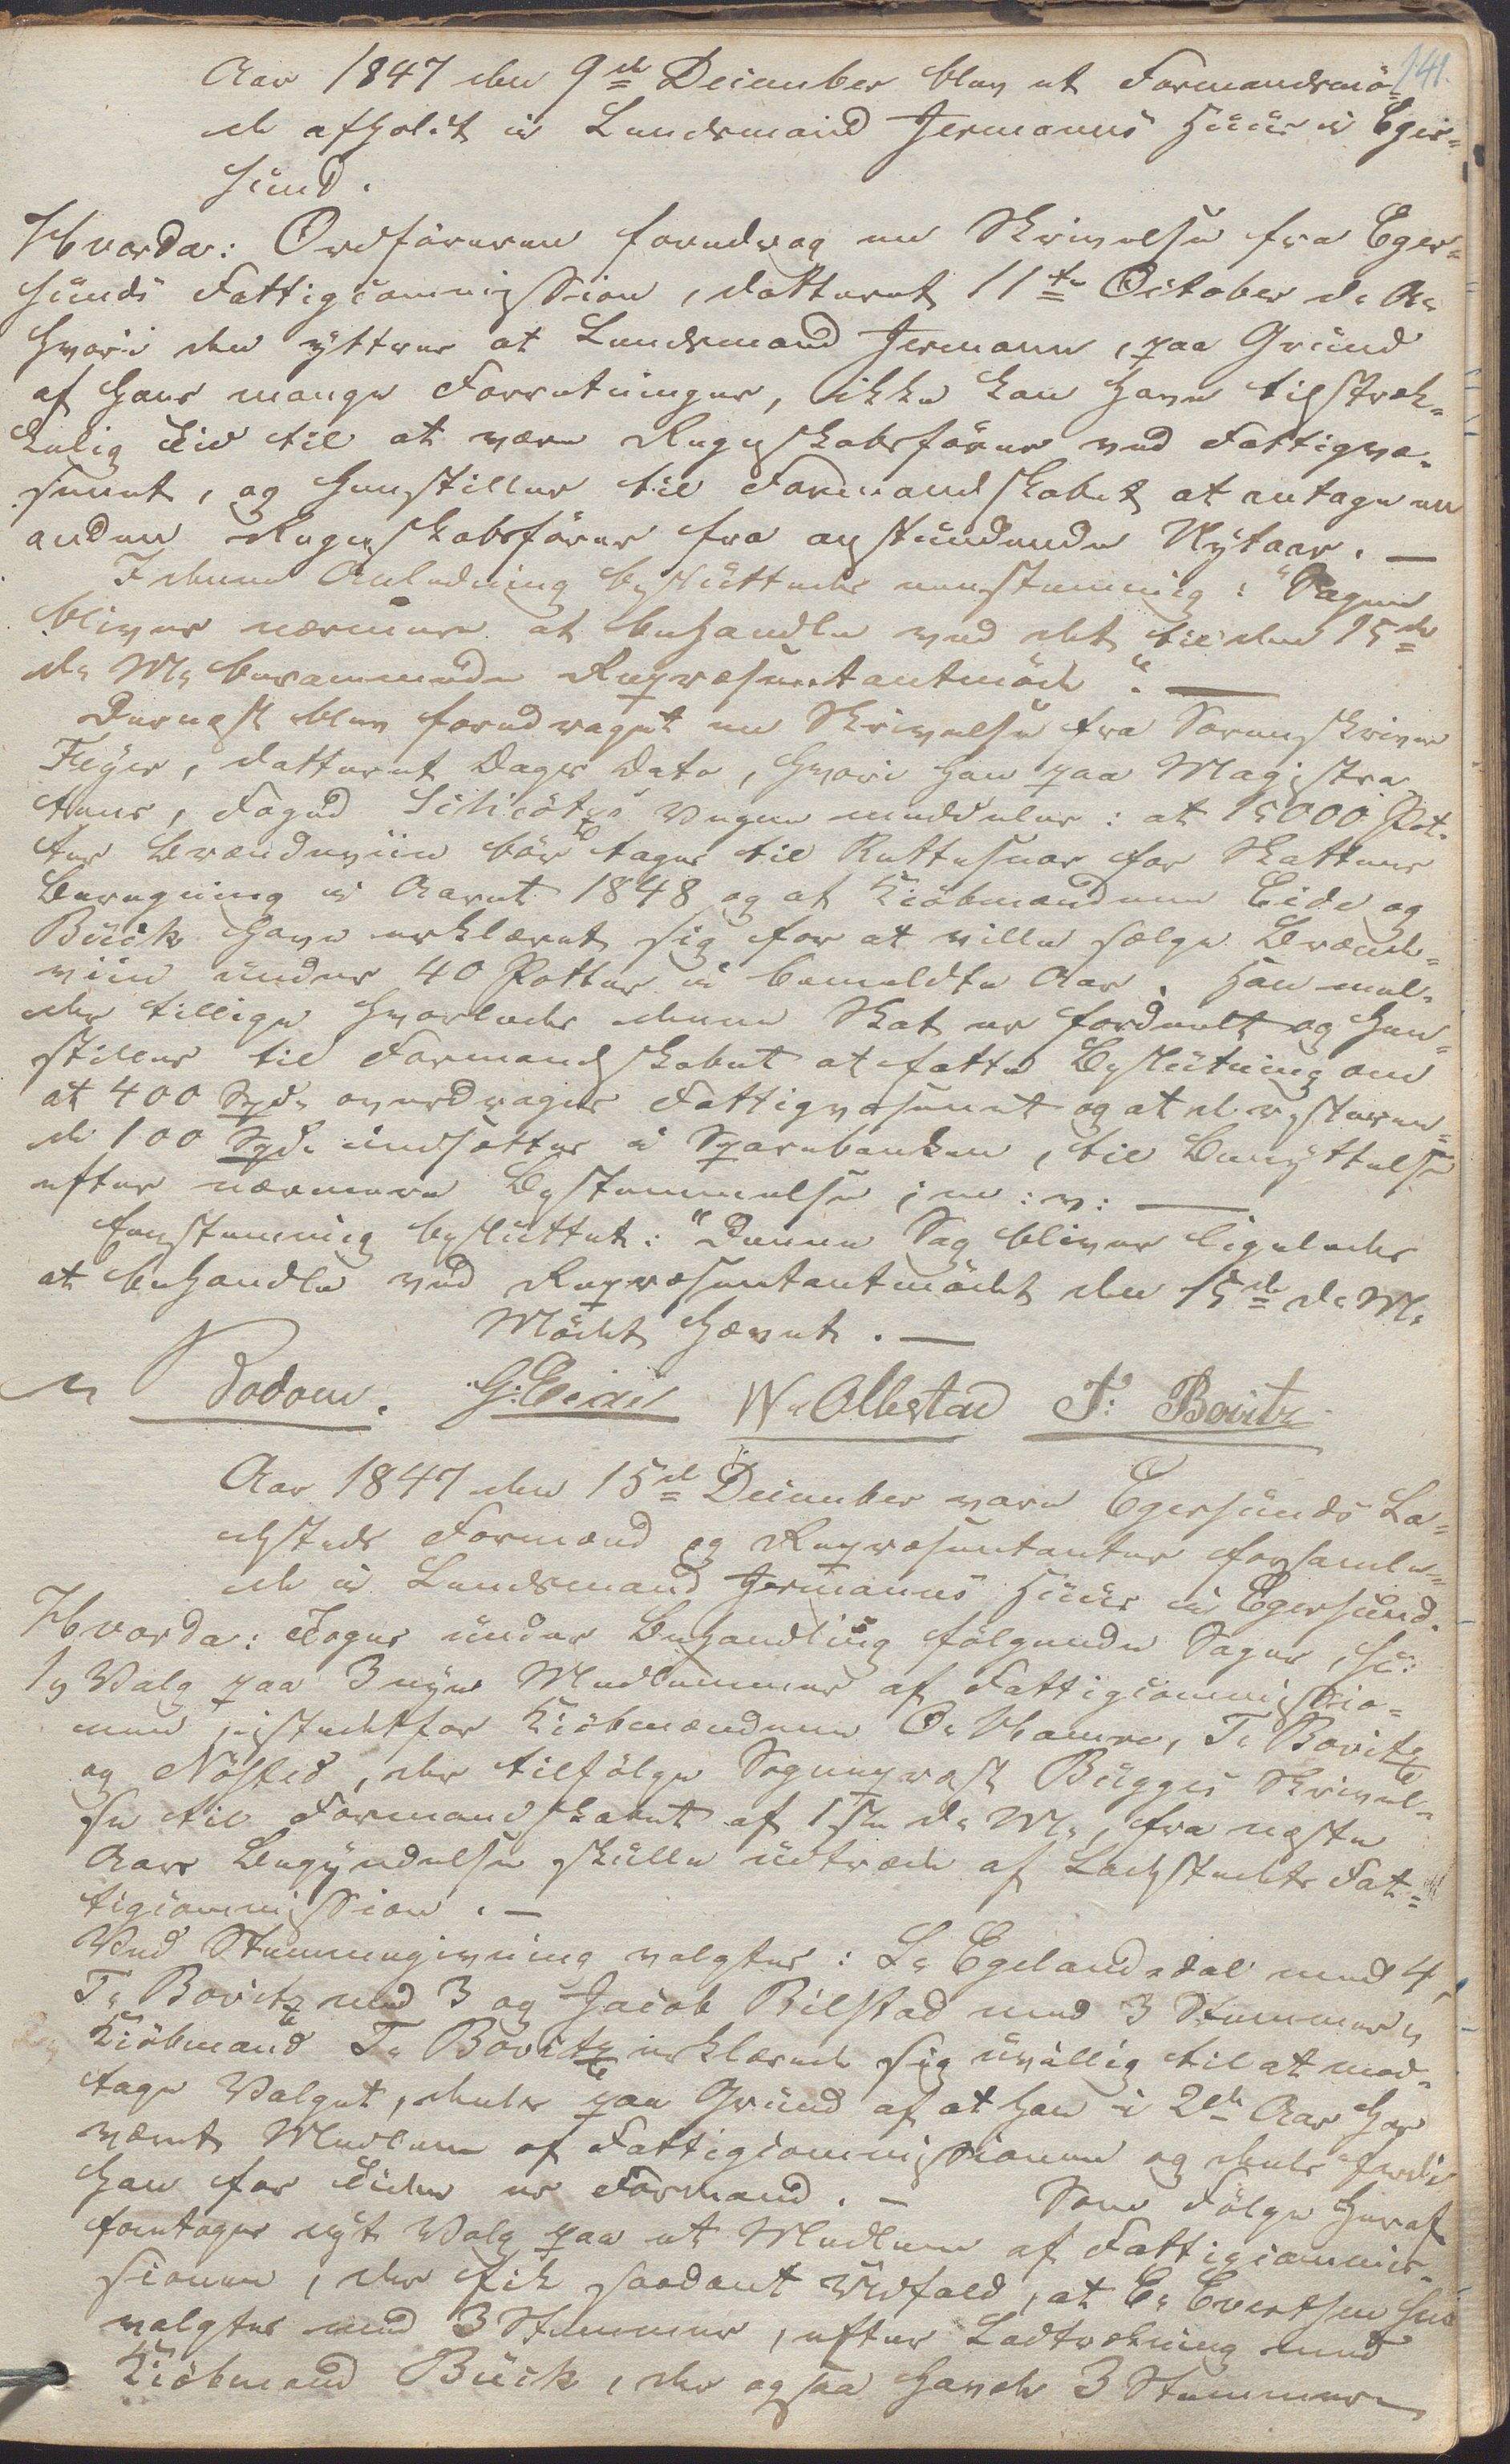 141.
Aar 1847 den 9de December blev et Formandsmö=
de afholdt i Lensmand Jermanns Huus i Eger=
sund.
Hvorda: Ordföreren foredrog en Skrivelse fra Eger=
sunds Fattigcommission, datteret 11te October d. A.
hvori den yttrer at Lensmand Jermann, paa Grund
af hans mange Forretninger, ikke kan have tilstræk=
kelig Tid til at være Regnskabsförer ved Fattigvæ=
senet, og henstiller til Formandskabet at antage en
anden Regnskabsförer fra anstundende Nytaar. —
I denne Anledning besluttedes eenstemmig: "Sagen
bliver nærmere at behandle ved det til den 15de
d. M. berammede Repræsentantmöde". —
Dernæst blev foredraget en Skrivelse fra Sorenskriver
Feyer, datteret Dags Dato, hvori han paa Magistra
tens, Foged Schiötz's Vegne meddeler: at 15000 Pot=
ter Brændeviin bör tages til Rettesnor for Skattens
Beregning i Aaret 1848 og at Kiöbmændene Eide og
Buck have erklæret sig for at ville sælge Brænde=
viin under 40 Potter i bemeldte Aar. Han mel=
der tillige hvorledes denne Skat er fordeelt og hen=
stiller til Formandskabet at fatte Beslutning om
at 400 Spd. overdrages Fattigvæsenet og at de resteren=
de 100 Spd. indsættes i Sparebanken, til Benyttelse
efter nærmere Bestemmelse; m: v: —
Eenstemmig besluttet: "Denne Sag bliver ligeledes
at behandle ved Repræsentantmödet den 15de d. M.
Mödet hævet. —
Dodom. G: Eide W. Ollestad T: Bovitz
Aar 1847 den 15de December vare Egersunds La=
desteds Formænd og Repræsentanter forsamle=
de i Lensmand Jermanns Huus i Egersund.
Hvorda: Toges under Behandling fölgende Sager, su:
1, Valg paa 3 nye Medlemmer af Fattigcommissio=
nen, istedetfor Kiöbmændene O. Hamre, T. Bovitz
og Nösted, der tilfölge Sogneprest Bugges Skrivel=
se til Formandskabet af 1ste d. M., fra næste
Aars Begyndelse skulle udtræde af Ladestedets Fat=
tigcommission. —
Ved Stemmegivning valgtes: L. Egelandsdal med 4,
T. Bovitz med 3 og Jacob Bilstad med 3 Stemmer,
Kiöbmand T. Bovitz erklærede sig uvillig til at mod=
tage Valget, deels paa Grund af at han i 2de Aar har
været Medlem af Fattigcommissionen og deels fordi
han for Tiden er Formand. — Som Fölge heraf
foretoges nyt Valg paa et Medlem af Fattigcommis=
sionen, der fik saadant Udfald, at E. Evertsen
valgtes med 3 Stemmer, efter Lodtrækning med
Kiöbmand Buck, der ogsaa havde 3 Stemmer